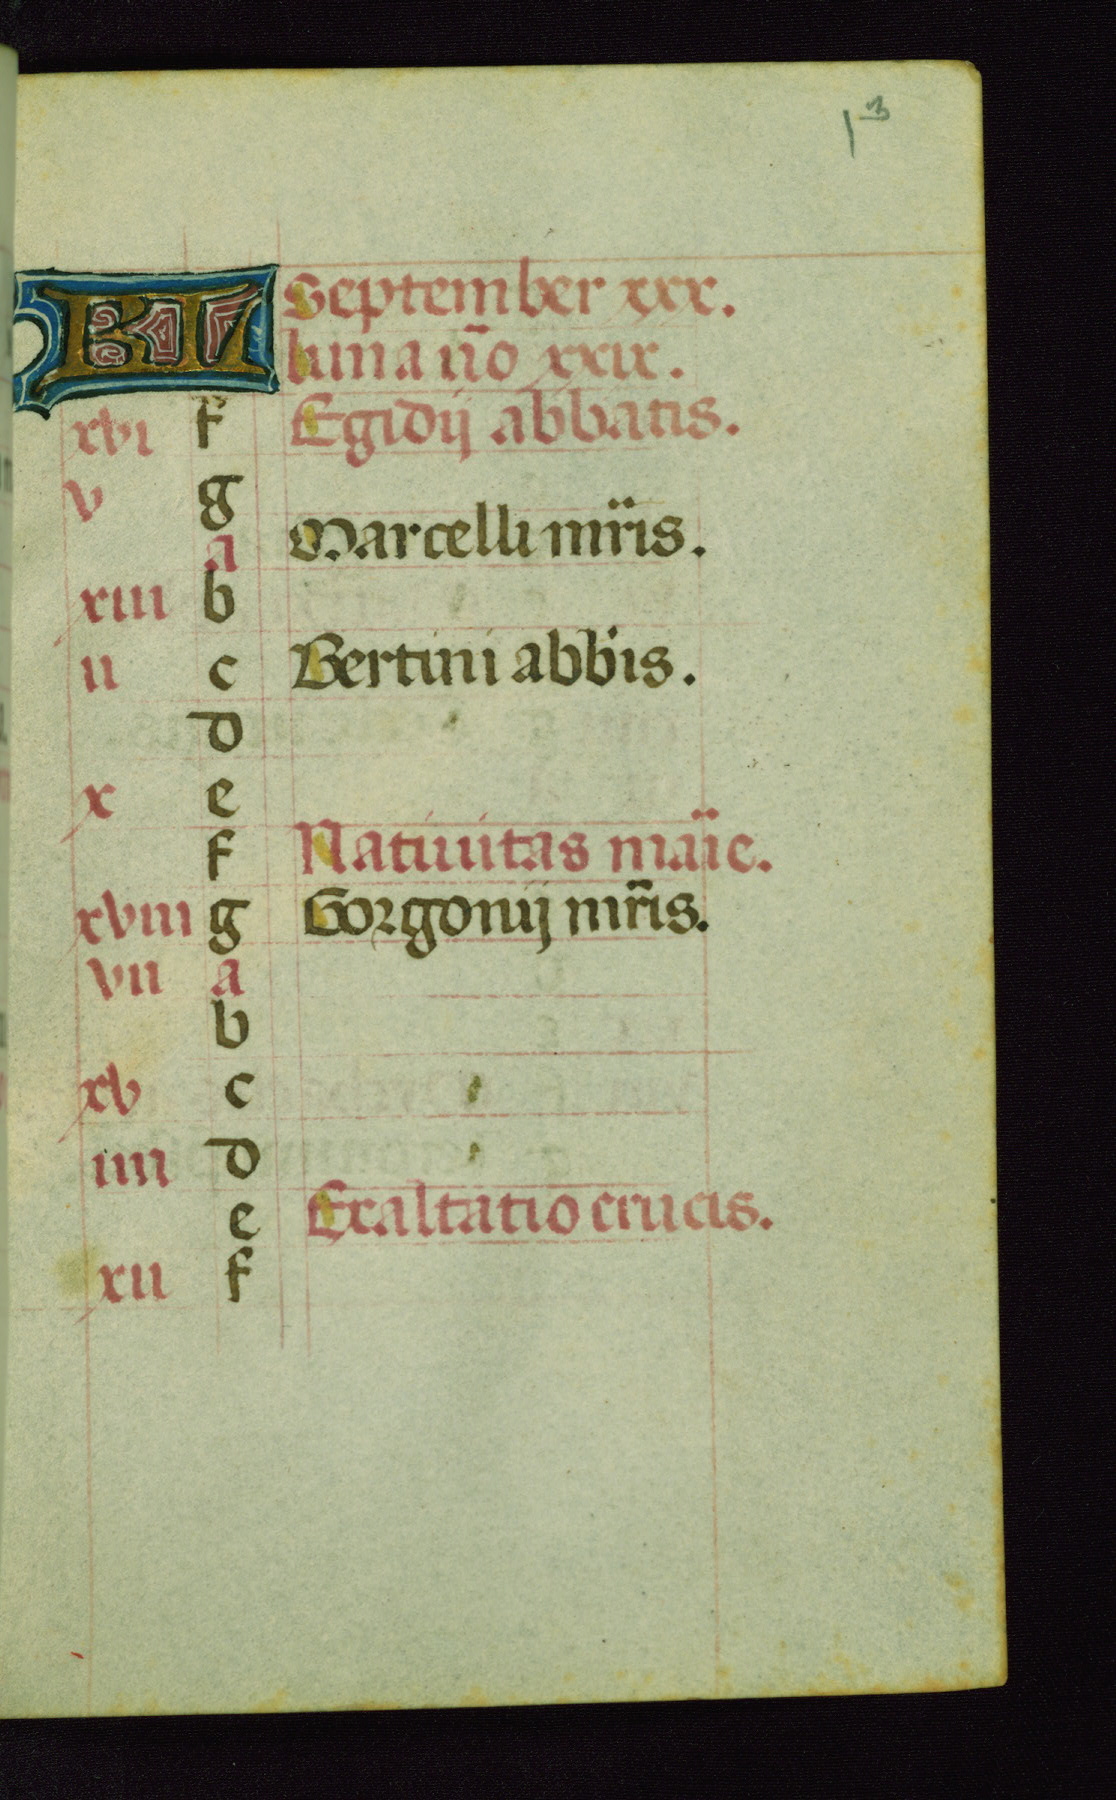 13
KL September xxx.
luna ṽo xxix.
xvi f Egidij abbatis.
v g
a Marcelli mr̃is.
xiii b
ii c Bertini abb'is.
d
x e
f Natiuitas mar̃ie.
xviii g Gorgonij mr̃is.
vii a
b
xv c
iiii d
e Exaltatio crucis.
xii f